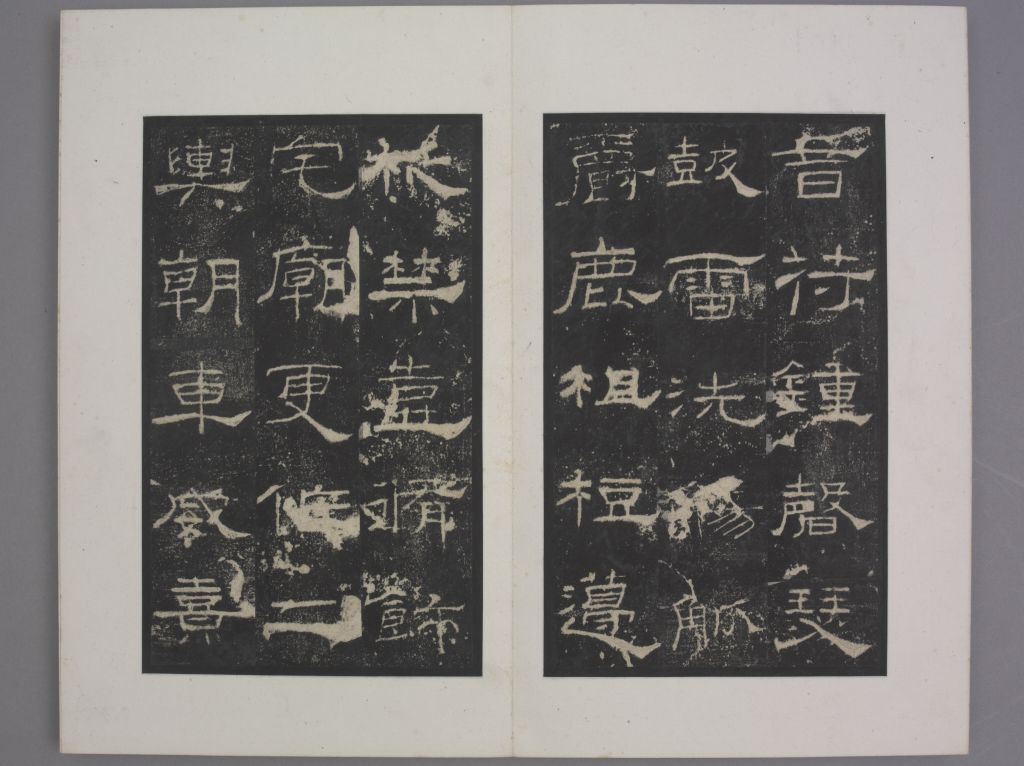 音苻鍾磬瑟
鼓雷洗觴觚
爵鹿柤梪籩
柉禁壺脩飾
宅廟更作二
輿朝車威熹